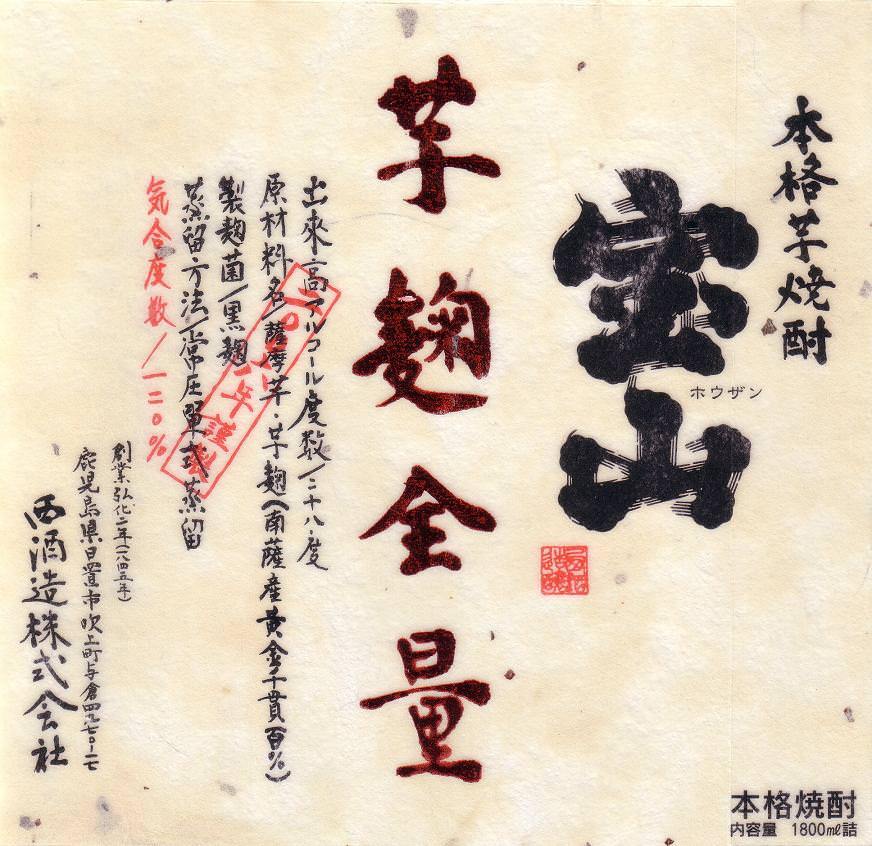 本格芋焼酎
宝山
ホウザン
芋麹全量
出來高アルコール度数/二十八・度
原材料名/薩摩芋・芋麹(南薩産黄金千貫百%)
製麹菌/黒麹
蒸留方法/常圧單式蒸留
気合度数/一二〇%
年謹製
創業弘化二年(一八四五年)
鹿児島県日置市吹上町与倉四九七〇-一七
西酒造株式会社
本格焼酎
内容量 1800㎖詰